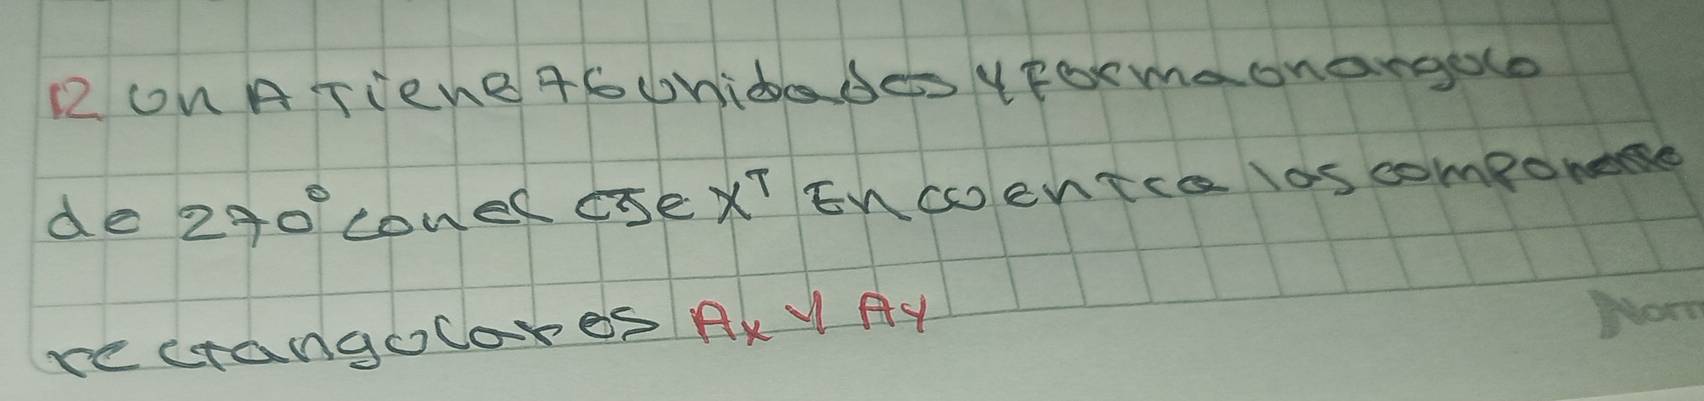 12 un A Tiene 76 unidades y Forma un angulo
de 270° con el eje X⁺ Encuentre las componente
rectangulares Ax y Ay
Norm